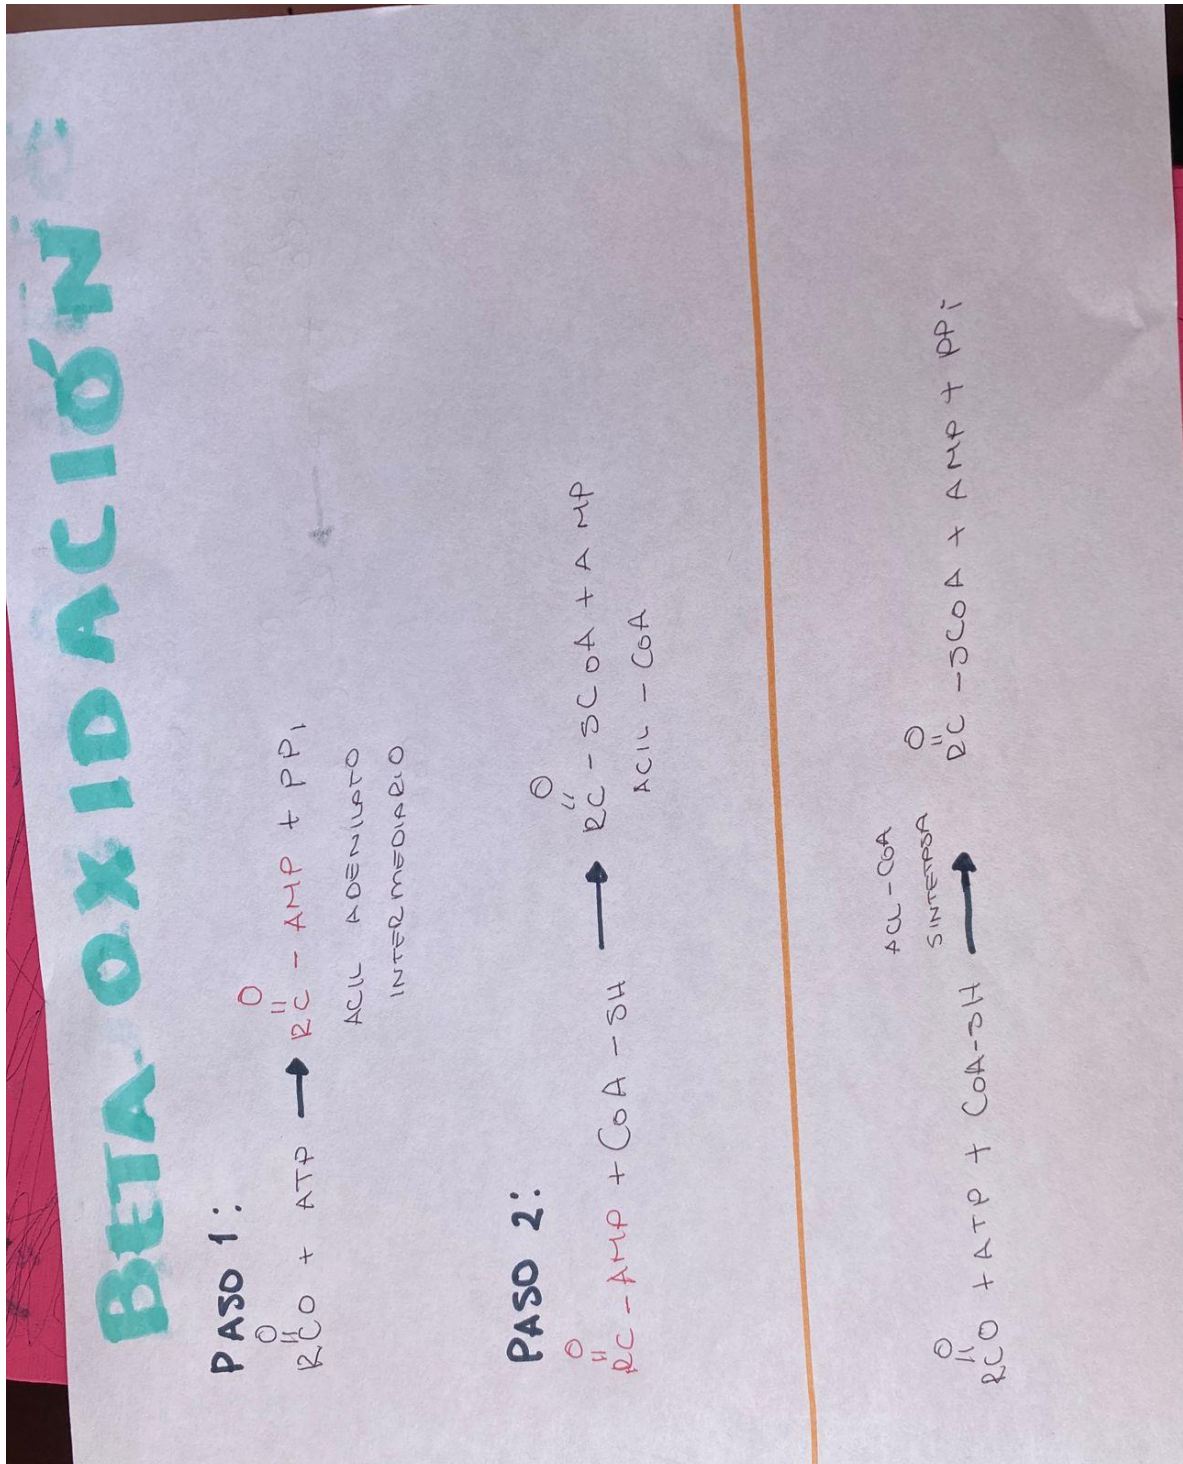 BETA OXIDACIÓN
PASO 1:
O
RCO + ATP → RC - AMP + PPi
O
ACIL ADENILATO
INTERMEDIARIO
PASO 2:
O
RC - AMP + CoA - SH → RC - SCoA + AMP
O
ACIL - CoA
ACIL - CoA
SINTETASA
O
RCO + ATP + CoA-SH → RC - SCoA + AMP + PPi
O